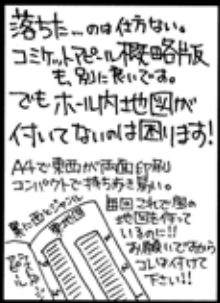 落ちた…のは仕方ない。
コミケットアピール概略版
も、別に良いです。
でもホール内地図が
付いてないのは困ります!
A4で東西が両面印刷
コンパクトで持ち歩き易い。
毎回これで個の
地図を作って
いるのに!!
お願いですから
コレは付けて
下さい!!
裏に西とジャンル
東地図